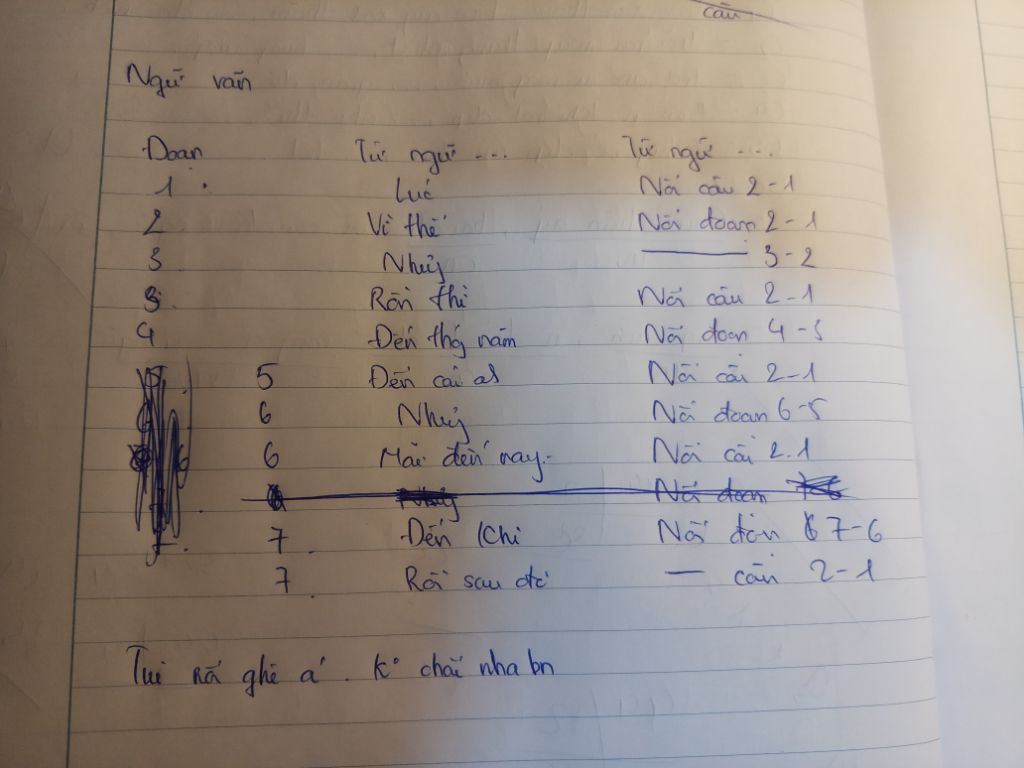 câu
Ngữ văn
Đoạn Từ ngữ ... Từ ngữ ....
1 Lúc Nối câu 2-1
2 Vì thế Nối đoạn 2-1
3 Nhưg ——— 3-2
3 Rồi thì Nối câu 2-1
4 Đến thág năm Nối đoạn 4-3
5 Đến cái Nối câu 2-1
6 Nhưg Nối đoạn 6-5
6 Mãi đến nay Nối câu 2.1
Nối đoạn
7 Đến khi Nối đoạn 7-6
7 Rồi sau đó — câu 2-1
Thì rứa ghê á. K chắc nha bn